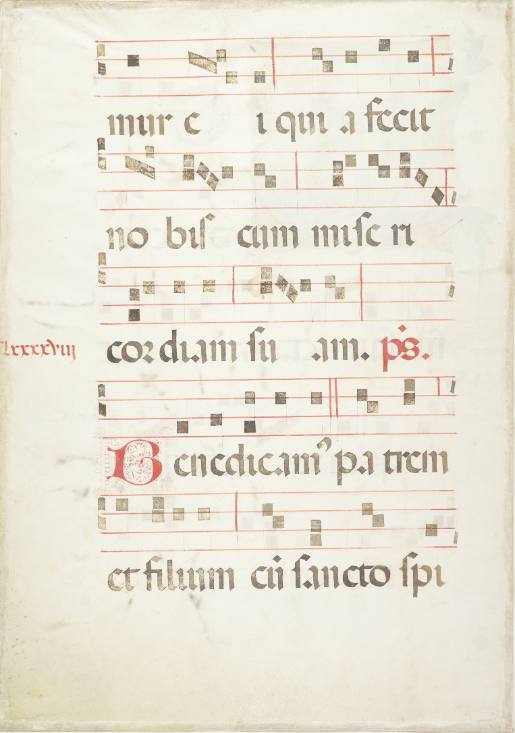 mur e i qui a fecit
nobis cum miseri
cordiam su am. ps.
lxxxxviii
Benedicam9 patrem
et filium cũ sancto spi